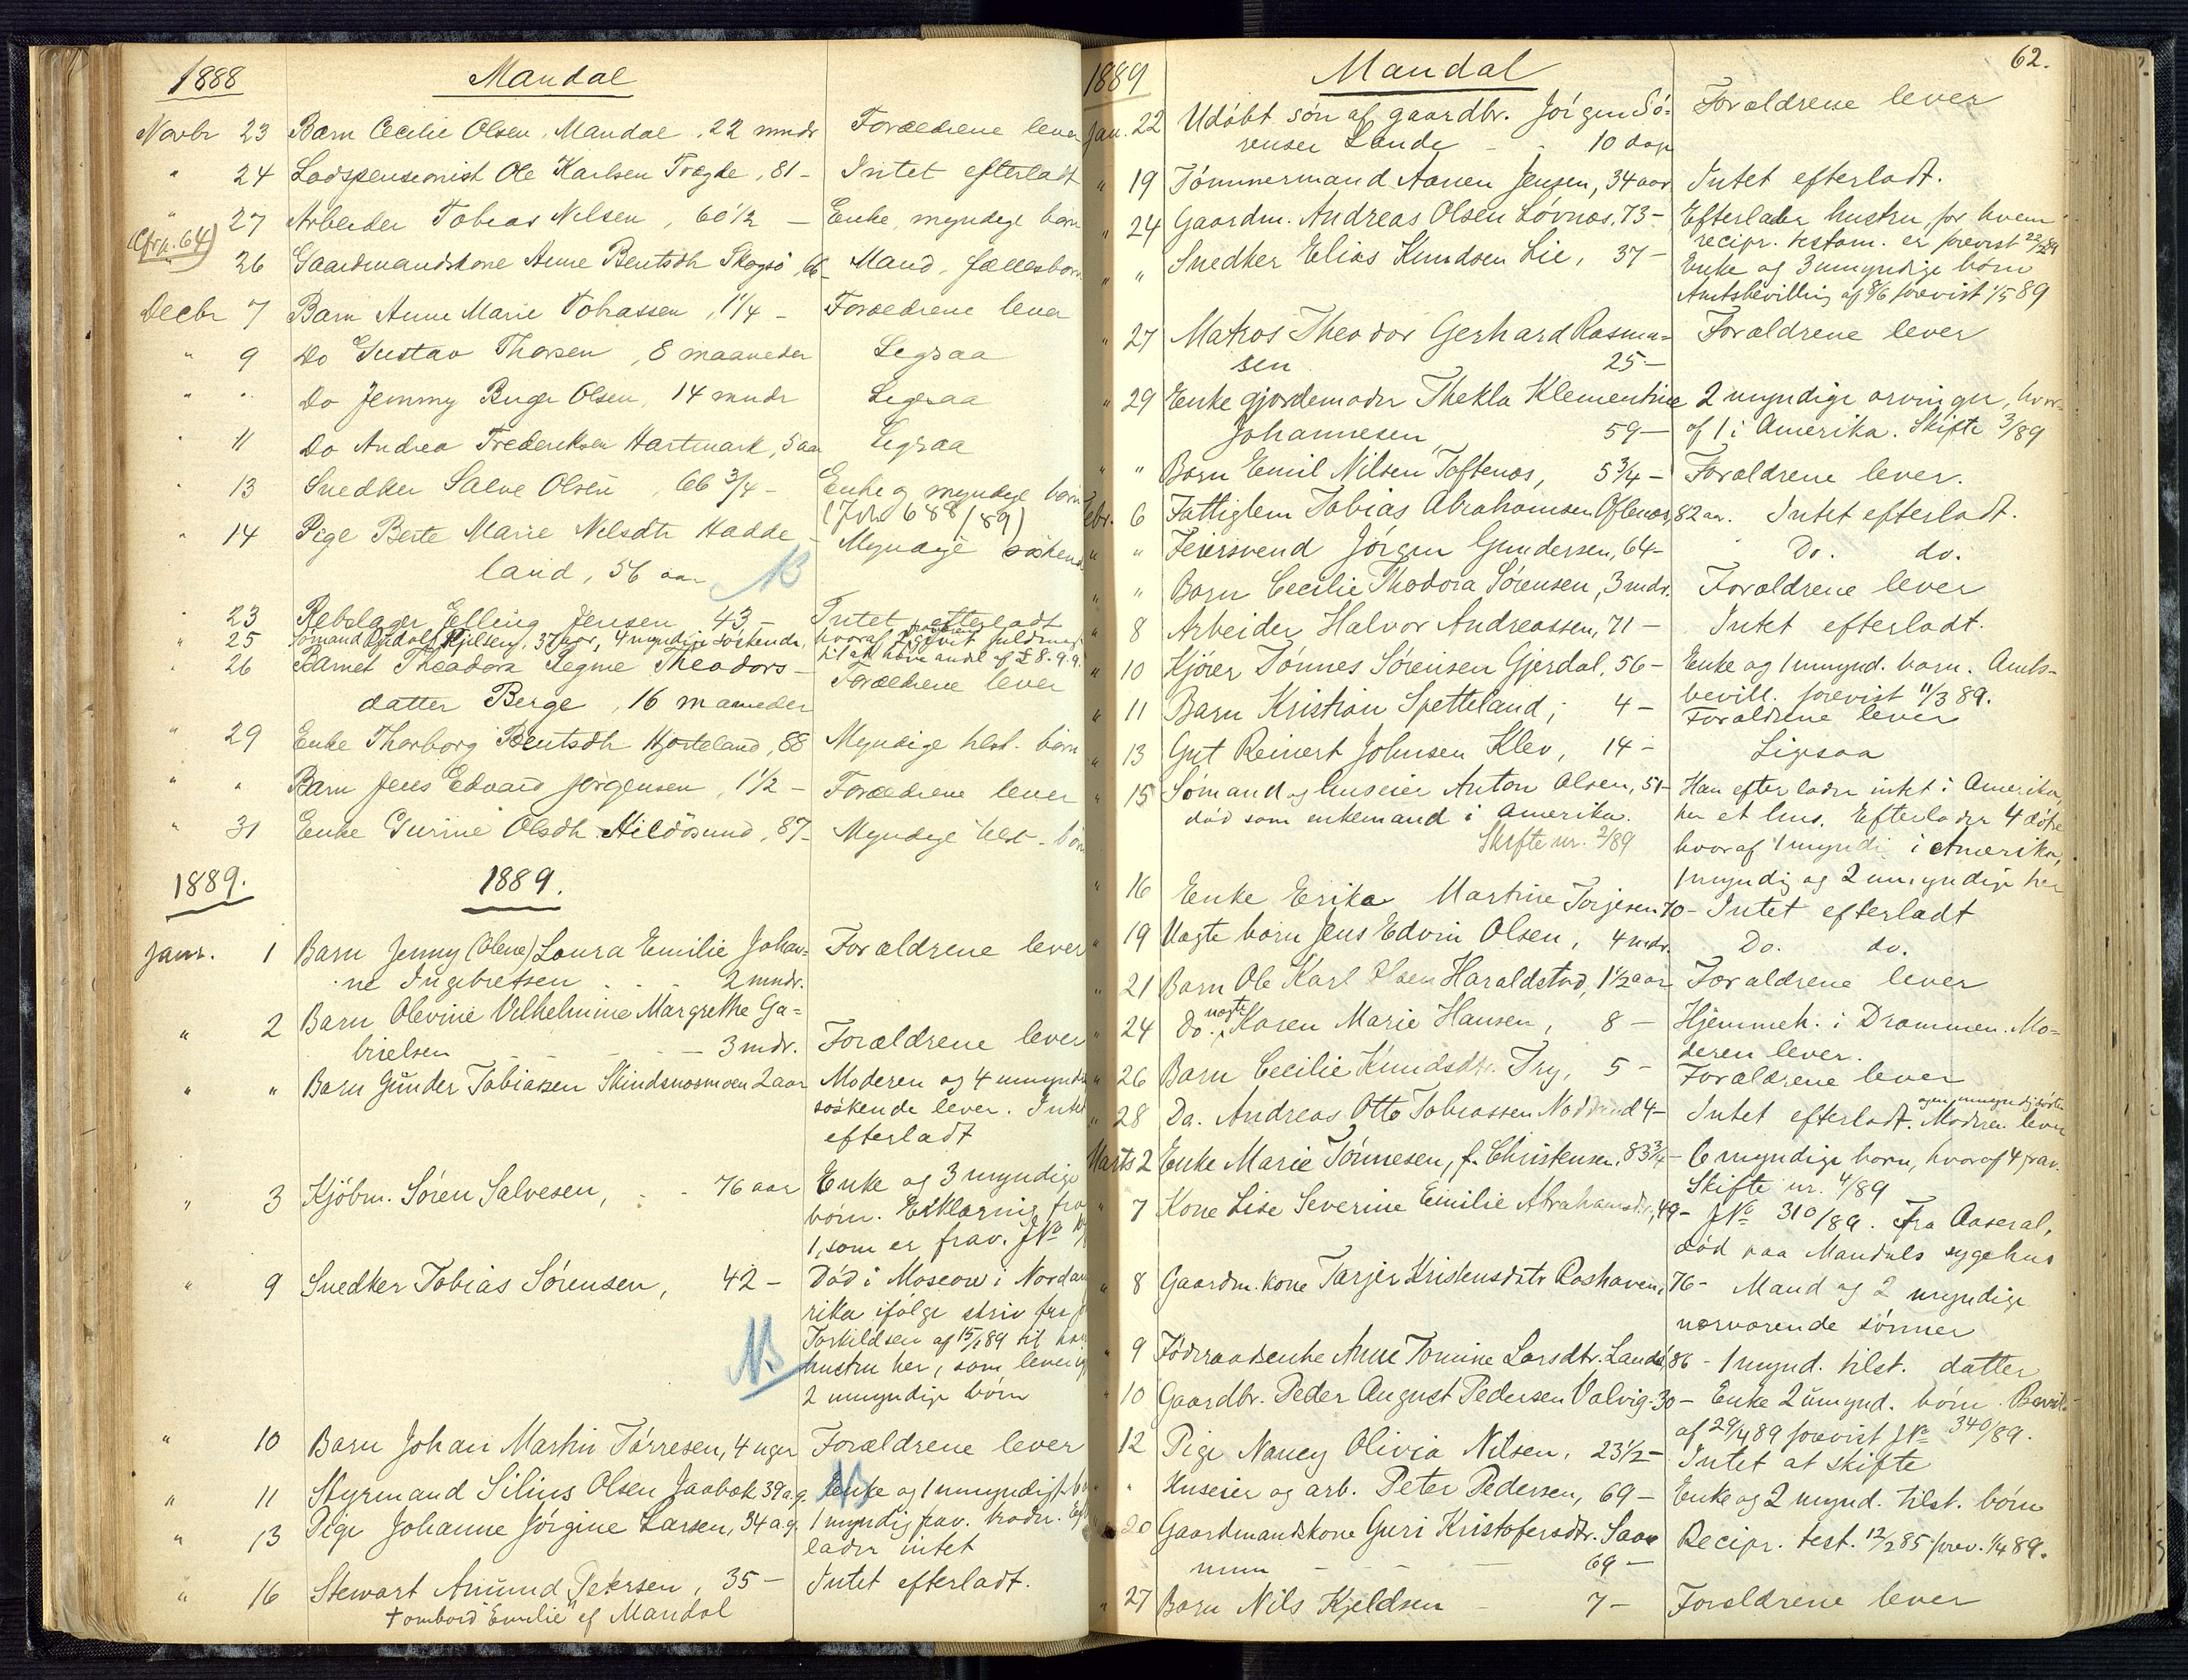 1888 Mandal
Novbr 23 Barn Cecilie Olsen, Mandal, 22 mndr Forældrene lever
" 24 Lodspensionist Ole Karlsen Trægde, 81 - Intet efterladt
" 27 Arbeider Tobias Nilsen, 60 1/2 - Enke, myndige børn
(Cfr p. 64)
26 Gaardmandskone Anne Bentsdtr Skogsø, 66 - Mand, fællesbørn
Decbr 7 Barn Anne Marie Tobiassen, 1 1/4 - Forældrene lever
" 9 Do Gustav Thorsen, 8 maaneder Ligsaa
" " Do Jemmy Olsen, 14 mndr Ligesaa
" 11 Do Andrea Frederiksen Hartmark, 5 aar Ligsaa
" 13 Snedker Salve Olsen, 66 3/4 - Enke og myndige børn
(J No 688/89)
" 14 Pige Berte Marie Nilsdtr Hadde- Myndige søskende
land, 56 aar NB
" 23 Rebslager Elling Jensen 43 - Intet efterladt
" 25 Sømand Kjelsen, 37 aar, 4 myndige søskende, hvoraf 1 givit fuldmagt
til at hæve andel af £ 8. 9. 9.
" 26 Barnet Theodora Signe Theodors-
datter Berge, 16 maaneder Forældrene lever
" 29 Enke Thorborg Bentsdtr Hjorteland, 88 Myndige tilst. børn
" " Barn Jens Edvard Jørgensen, 1 1/2 - Forældrene lever
" 31 Enke Gurine Olsdtr Hilløsund, 87 - Myndige tilst. børn
1889. 1889.
Janr. 1 Barn Jenny (Olene) Laura Emilie Johan= Forældrene lever
ne Ingebretsen - - - 2 mndr.
" 2 Barn Olevine Vilhelmine Margrethe Ga=
brielsen - - - - - 3 mdr. Forældrene lever
" " Barn Gunder Tobiassen Skindsnesmoen 2 aar Moderen og 4 umyndige
søskende lever. Intet
efterladt
" 3 Kjøbm. Søren Salvesen, - - 76 aar Enke og 3 myndige
børn. Erklæring fra
1, som er frav. J No
" 9 Snedker Tobias Sørensen, 42 - Død i Moscow i Nordam
rika ifølge skriv fra
Torkildsen af 15/1 89 til
NB hustru her, som lever og
2 umyndige børn
" 10 Barn Johan Martin Tørresen, 4 uger Forældrene lever
" 11 Styrmand Silius Olsen Jaabæk 39 a. g. NB Enke og 1 umyndigt barn
" 13 Pige Johanne Jørgine Larsen, 34 a. g. 1 myndig frav. broder. Ef
lader intet
" 16 Stewart Amund Petersen, 35 - Intet efterladt.
+ ombord "Emilie" af Mandal
1889 Mandal 62.
Jan. 22 Udøbt søn af gaardbr. Jørgen Sø- Forældrene lever
rensen Lande - - 10 dage
" 19 Tømmermand Aanen Jensen, 34 aar Intet efterladt.
" 24 Gaardm. Andreas Olsen Løvnæs, 73 - Efterlader hustru, for hvem
recipr. testam. er forevist 22/2 89
" " Snedker Elias Knudsen Lie, 37 - Enke og 3 umyndige børn
Amtsbevilling af 8/6 forevist 1/5 89
" 27 Matros Theodor Gerhard Rasmus= Forældrene lever
sen 25 -
" 29 Enke gjordemoder Thekla Klementine 2 myndige arvinger, hvor-
Johannesen, 59 - af 1 i Amerika. Skifte 3/89
" " Barn Emil Nilsen Toftenæs, 5 3/4 - Forældrene lever.
Febr. 6 Fattiglem Tobias Abrahamsen Oftenæs, 82 aar. Intet efterladt.
" " Feiersvend Jørgen Gundersen, 64 - Do. do.
" " Barn Cecilie Theodora Sørensen, 3 mdr. Forældrene lever
" 8 Arbeider Halvor Andreassen, 71 - Intet efterladt.
" 10 Kjører Tønnes Sørensen Gjerdal, 56 - Enke og 1 umynd. barn. Amts-
bevill. forevist 11/3 89.
" 11 Barn Kristian Spetteland, 4 - Forældrene lever
" 13 Gut Reinert Johnsen Klev, 14 - Ligesaa
" 15 Sømand og huseier Anton Olsen, 51 - Han efterlader intet i Amerika,
død som enkemand i Amerika. her et hus. Efterlader 4 døtre
Skifte nr. 2/89 hvoraf 1 myndig i Amerika,
1 myndig og 2 umyndige her
" 16 Enke Erika Martine Torjesen 70 - Intet efterladt
" 19 Uægte barn Jens Edvin Olsen, 4 mdr. Do. do.
" 21 Barn Ole Karl Olsen Haraldstad, 1 1/2 aar Forældrene lever
" 24 Do. uægte Karen Marie Hansen, 8 - Hjemmeh. i Drammen. Mo-
deren lever.
" 26 Barn Cecilie Knudsdtr. Try, 5 - Forældrene lever
" 28 Do. Andreas Otto Tobiassen Nodeland 4 - Intet efterladt. Moderen lever
Marts 2 Enke Marie Tønnesen, f. Christensen, 83 3/4 - 6 myndige børn, hvoraf 4 frav.
Skifte nr. 4/89
" 7 Kone Lise Severine Emilie Abrahamsdtr, 49 - J No 310/89. Fra Aaseral,
død paa Mandals sygehus
" 8 Gaardm. kone Tarjer Kristensdatr Roshaven, 76 - Mand og 2 myndige
nærværende sønner
" 9 Føderaadsenke Anne Tomine Larsdtr. Lande, 86 - 1 mynd. tilst. datter
" 10 Gaardbr. Peder August Pedersen Valvig. 30 - Enke 2 umynd. børn. Bevil-
af 29/4 89 forevist J No 340/89.
12 Pige Nancy Olivia Nilsen, 23 1/2 - Intet at skifte
" Huseier og arb. Peter Pedersen, 69 - Enke og 2 mynd. tilst. børn
20 Gaardmandskone Guri Kristofersdtr. Saan Recipr. test. 12/2 85 forev. 1/4 89.
num - - - 69 -
" 27 Barn Nils Kjeldsen - 7 - Forældrene lever